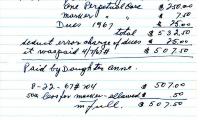 One Perpetual Care $ 250.00
marker " " $ 7.50
Dues 1967 $ 25.00
total $ 532.50
deduct error charge of dues $ 25.00
it was paid $ 507.50
Paid by Daughter Anne.
8-22-67 # 704 $ 507.00
50¢ less for marker - allowed $ .50
in full. $ 507.50